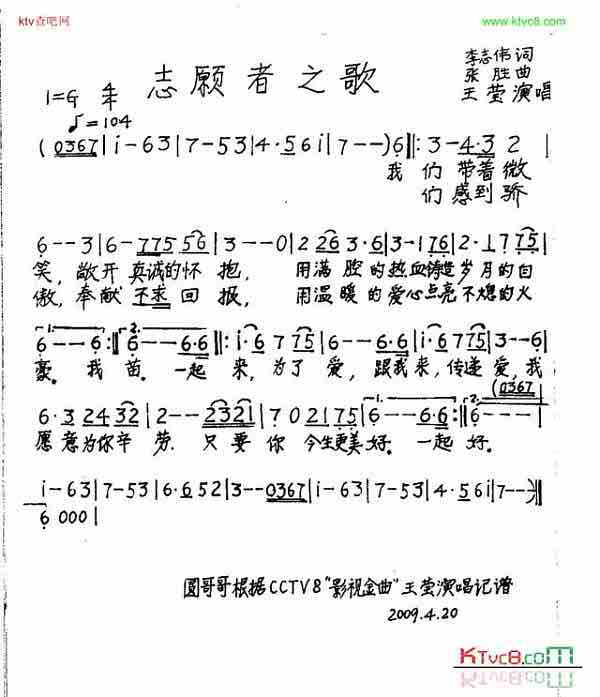 ktv查吧网
www.ktvc8.com
志愿者之歌
李志伟词
张胜曲
王莹演唱
1=G 4/4
♩=104
(0367|i-63|7-53|4·56i|7--)6|:3-4·32|
我们带着微
们感到骄
6--3|6-7756|3--0|2263·6|3-176|2·1775|
笑,敞开真诚的怀抱,用满腔的热血铸造岁月的自
傲,奉献不求回报,用温暖的爱心点亮不熄的火
1. 2.
6--6:|6--6·6|:i·6775|6--6·6|i·6775|3--6|
豪。我苗。一起来,为了爱,跟我来,传递爱,我
(0367
6·32432|2--2321|702175|6--6·6:|6--
愿意为你辛劳.只要你今生更美好.一起好.
i-63|7-53|6·652|3--0367|i-63|7-53|4·56i|7--)
6000|
圆哥哥根据CCTV8"影视金曲"王莹演唱记谱
2009.4.20
KTvc8.com